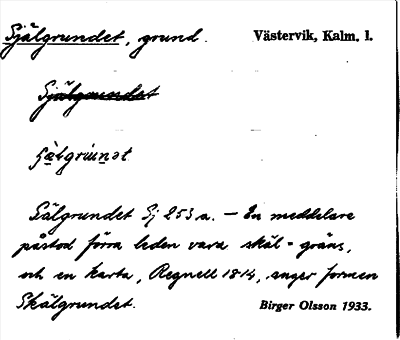 Själgrundet, grund. Västervik, Kalm. l.
Själgrundet
Sälgrundet Sj 253 a. – En meddelare
påstod förra leden vara skäl = gräns,
och en karta, Regnell 1814, anger formen
Skälgrundet. Birger Olsson 1933.